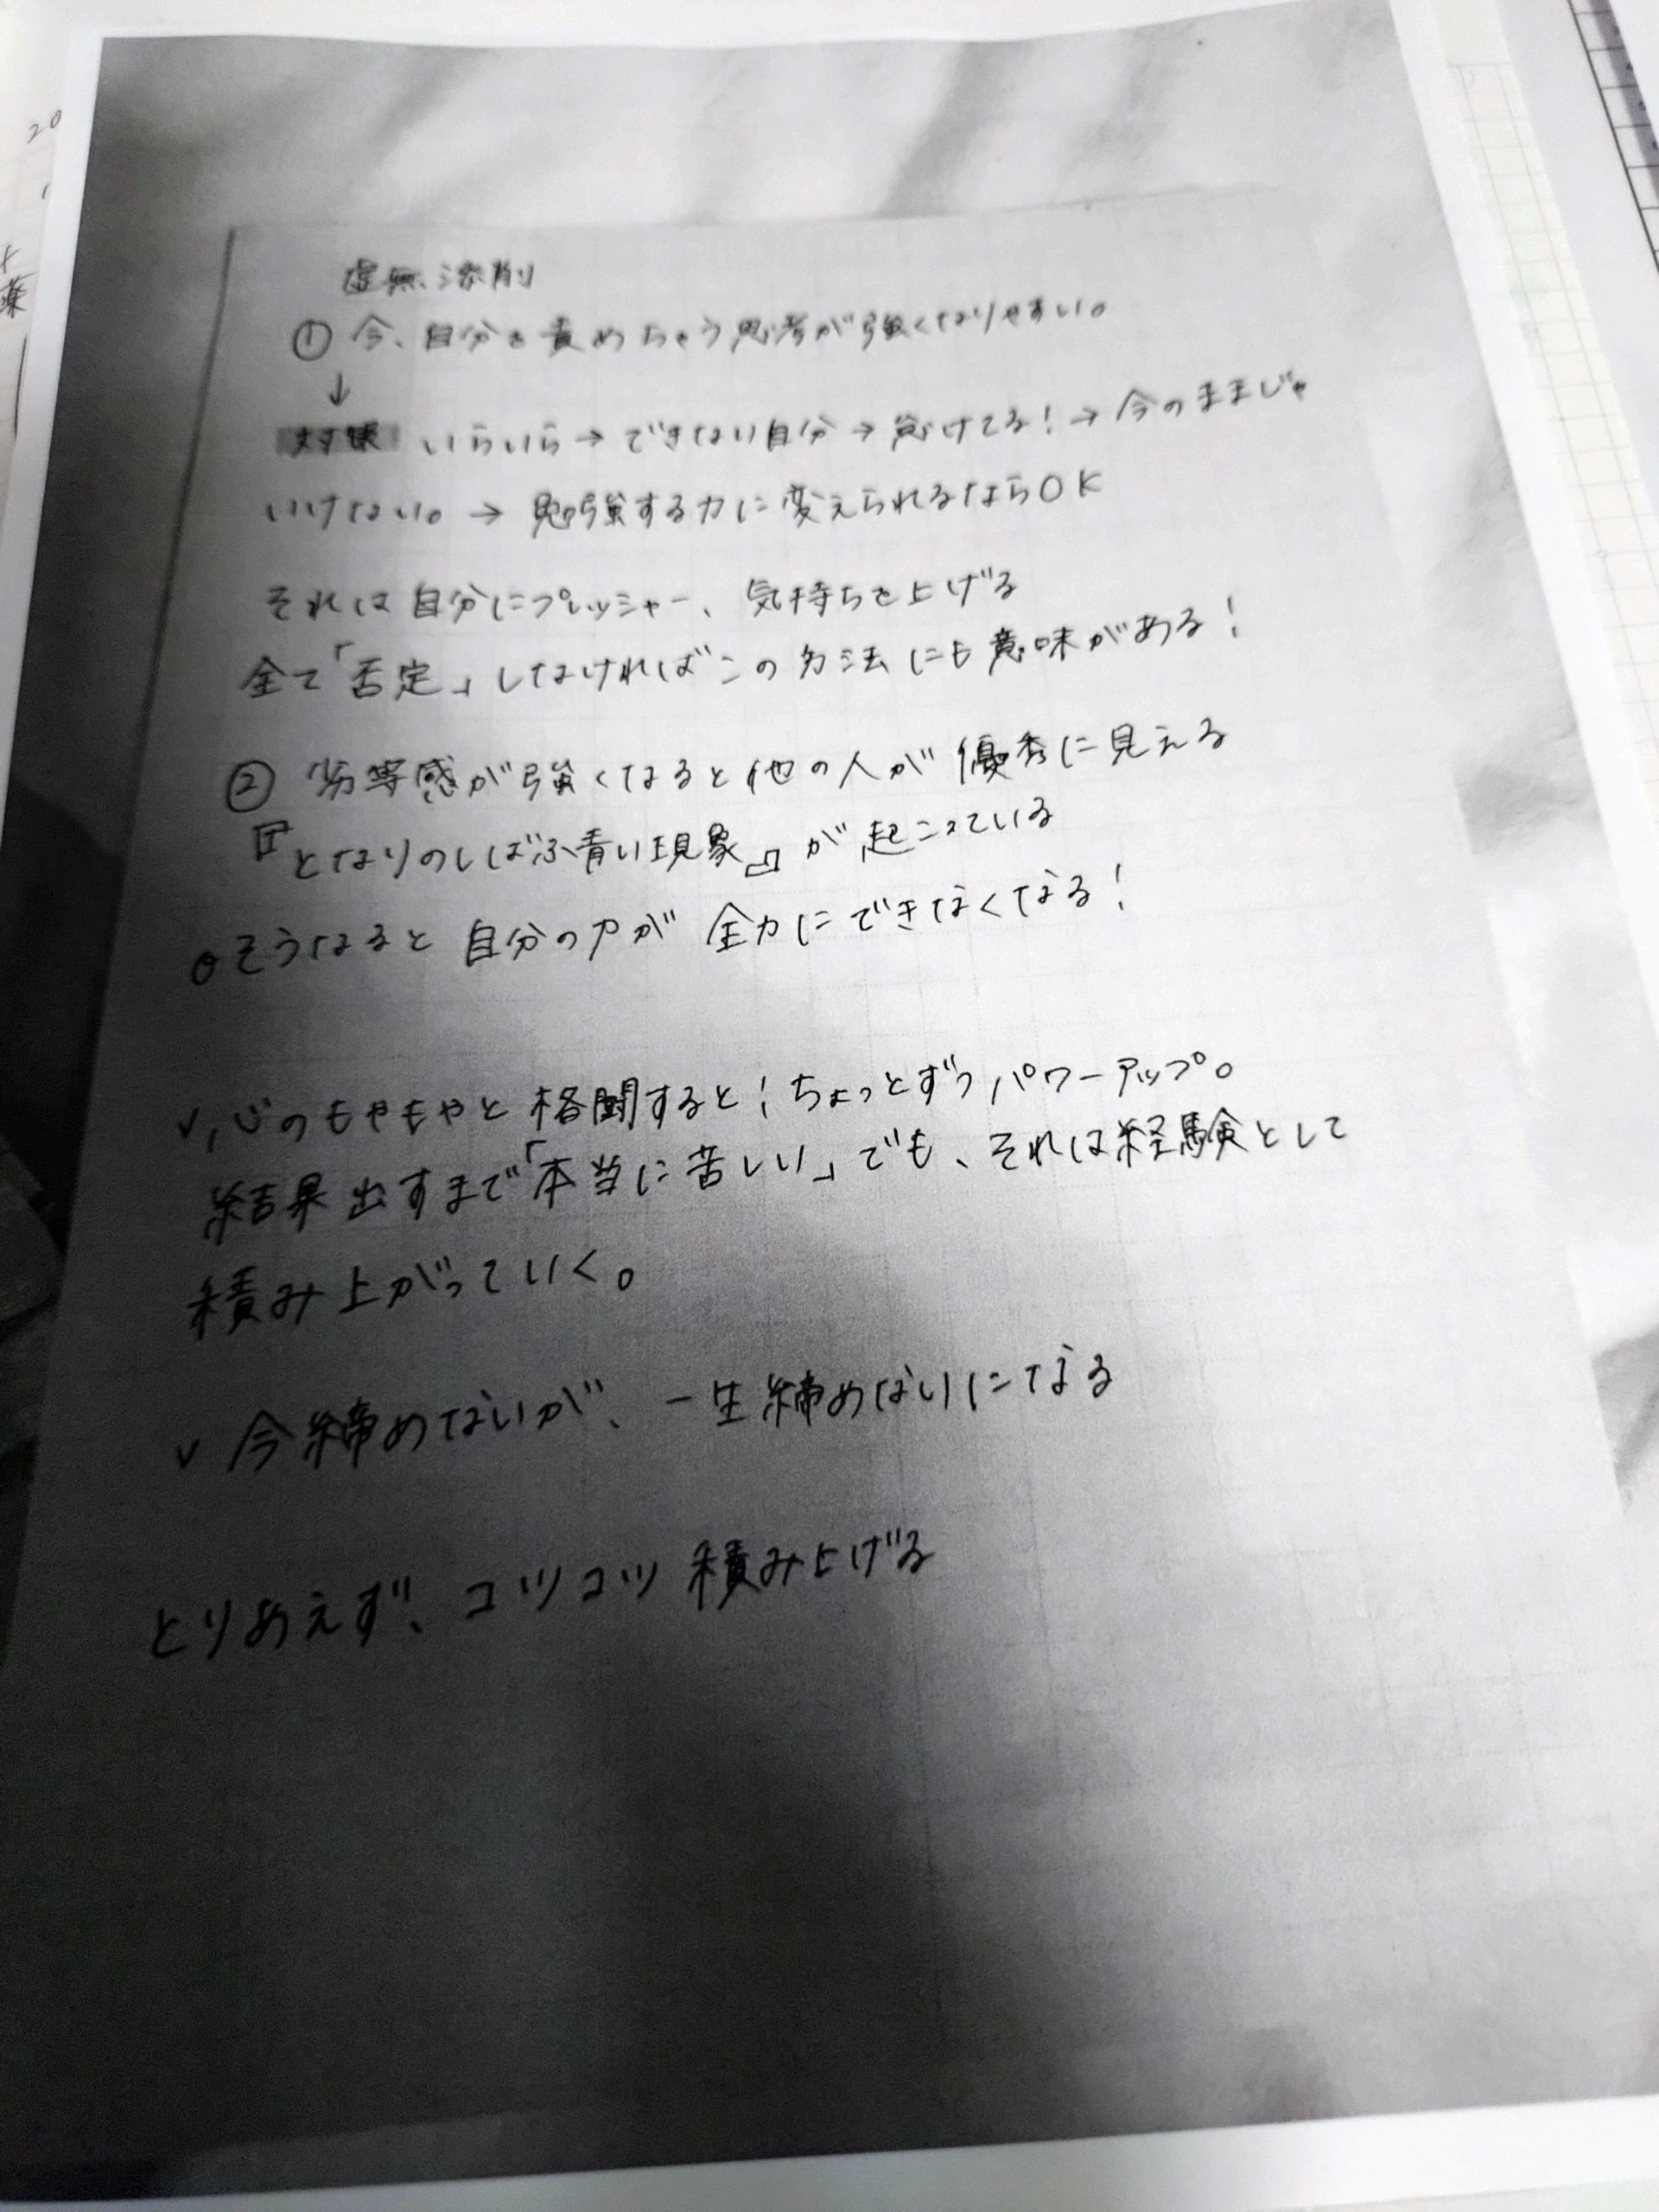 虚無添削
① 今、自分を責めちゃう思考が強くなりやすい。
↓
対策 いらいら→できない自分→怠けてる!→今のままじゃ
いけない。→勉強する力に変えられるならOK
それは自分にプレッシャー、気持ちを上げる
全て「否定」しなければこの方法にも意味がある!
② 劣等感が強くなると他の人が優秀に見える
『となりのしばふ青い現象』が起こっている
そうなると自分の力が全力にできなくなる!
✓心のもやもやと格闘すると!ちょっとずつパワーアップ。
結果出すまで「本当に苦しい」でも、それは経験として
積み上がっていく。
✓今締めないが、一生締めないになる
とりあえず、コツコツ積み上げる
20
薬